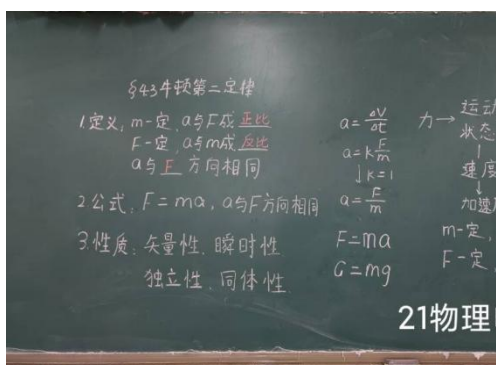 §4.3牛顿第二定律
1.定义，m一定，a与F成正比
F一定，a与m成反比
a与F方向相同
2.公式，F=ma，a与F方向相同
3.性质：矢量性、瞬时性、
独立性、同体性
a=ΔV/Δt
a=kF/m
↓k=1
a=F/m
F=ma
G=mg
力→运动
状态
↓
速度
↓
加速
m一定，
F一定
21物理